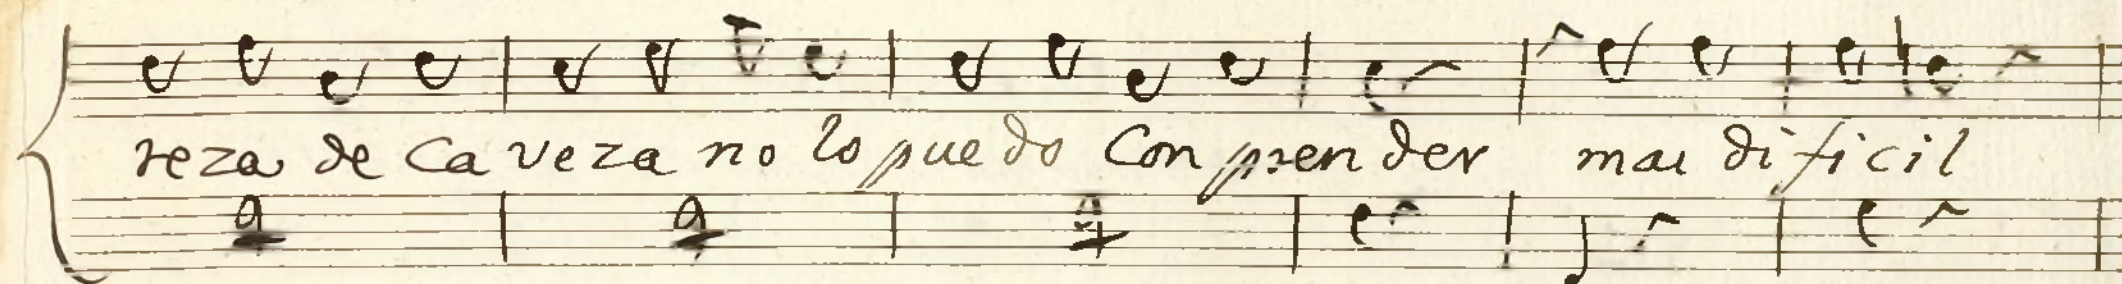 reza de Ca veza no lo puedo Con prender mas dificil